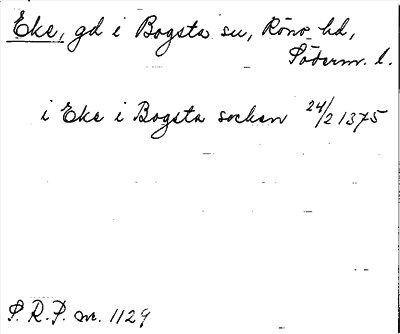 Eke, gd i Bogsta sn, Rönö hd,
Söderm. l.
i Eke i Bogsta socken 24/2 1375
S. R. P. nr. 1129